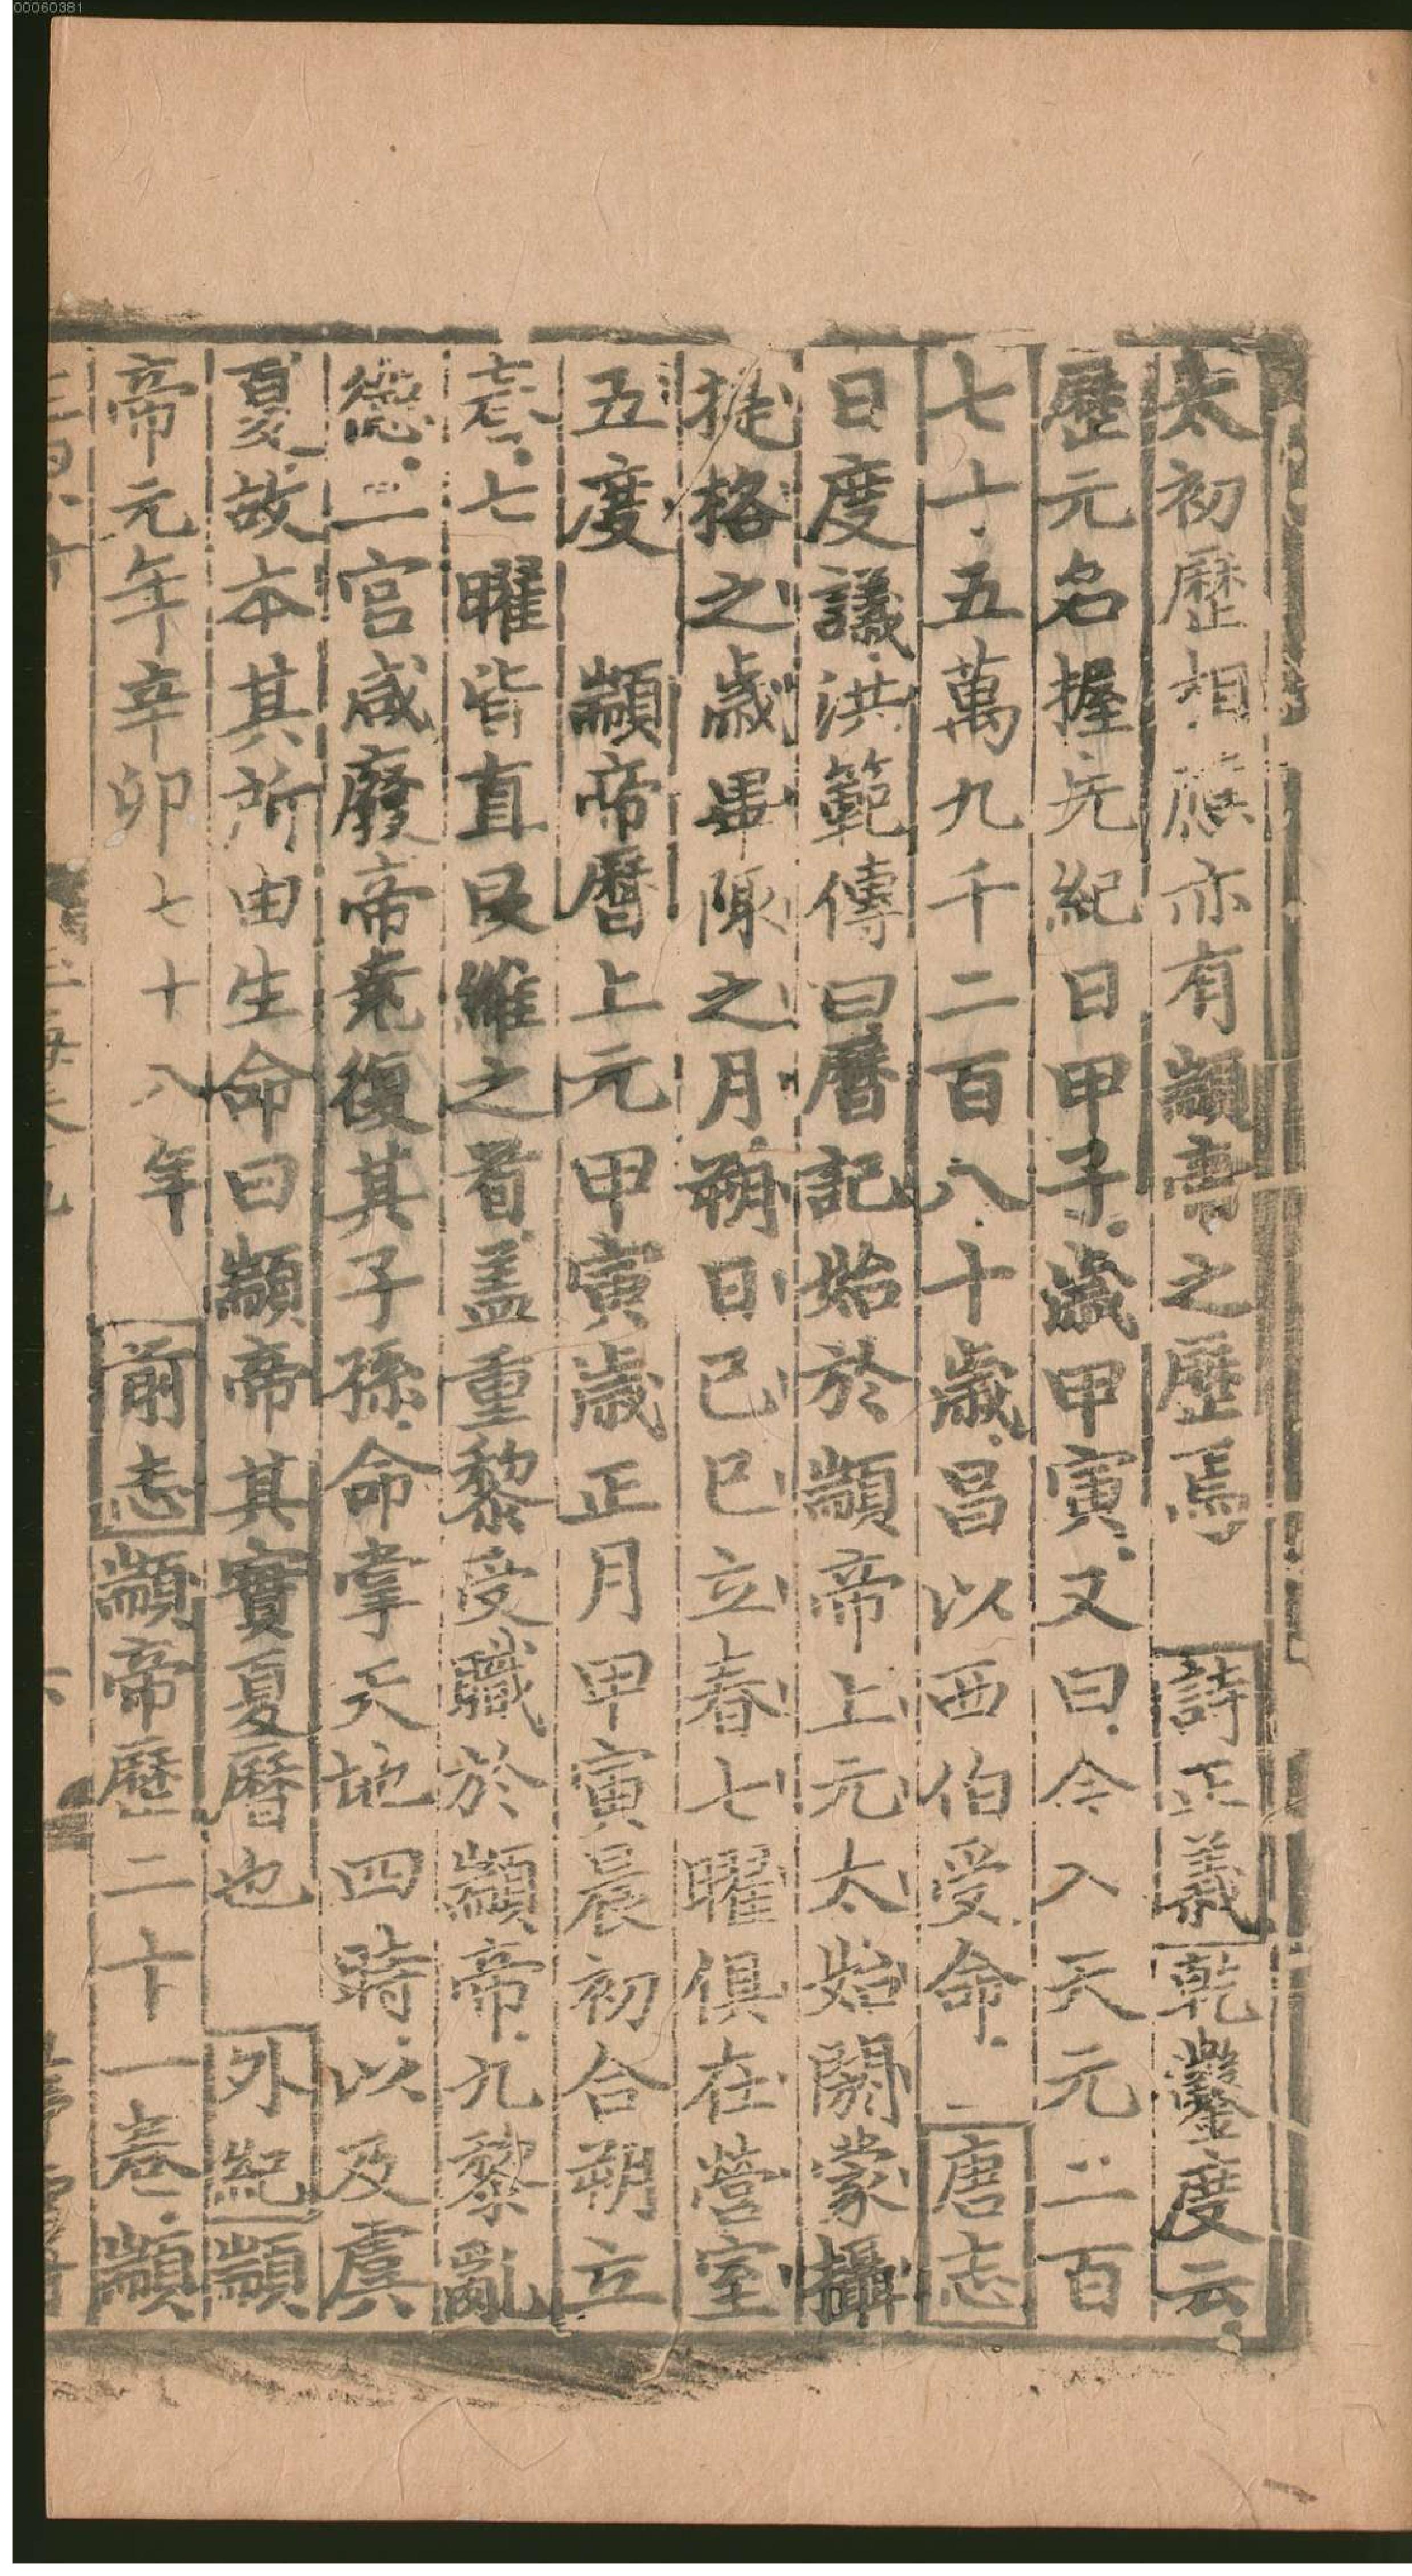 00060381
太初歷相應亦有顓帝之歷焉　詩正義乾鑿度云
歷元名握先紀日甲子歲甲寅又曰今入天元二百
七十五萬九千二百八十歲昌以西伯受命　唐志
日度議洪範傳曰曆記始於顓帝上元太始閼蒙攝
提格之歲畢陬之月朔日己巳立春七曜俱在營室
五度　顓帝曆上元甲寅歲正月甲寅晨初合朔立
春七曜皆直艮維之首盖重黎受職於顓帝九黎亂
德二官咸廢帝堯復其子孫命掌天地四時以及虞
夏故本其所由生命曰顓帝其實夏曆也　外紀顓
帝元年辛卯七十八年　前志顓帝歷二十一卷顓